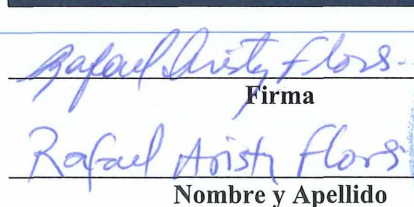 Rafael Aristy Flores
Firma
Rafael Aristy Flores
Nombre y Apellido